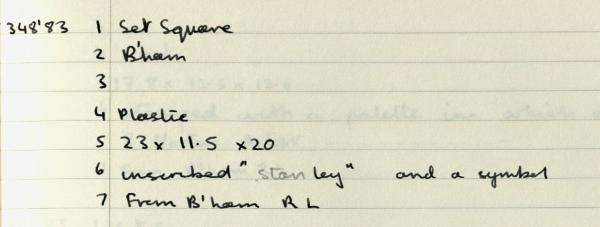 348'83 1 Set Square
2 B'ham
3
4 Plastic
5 23 x 11.5 x 20
6 inscribed "Stanley" and a symbol
7 From B'ham R L